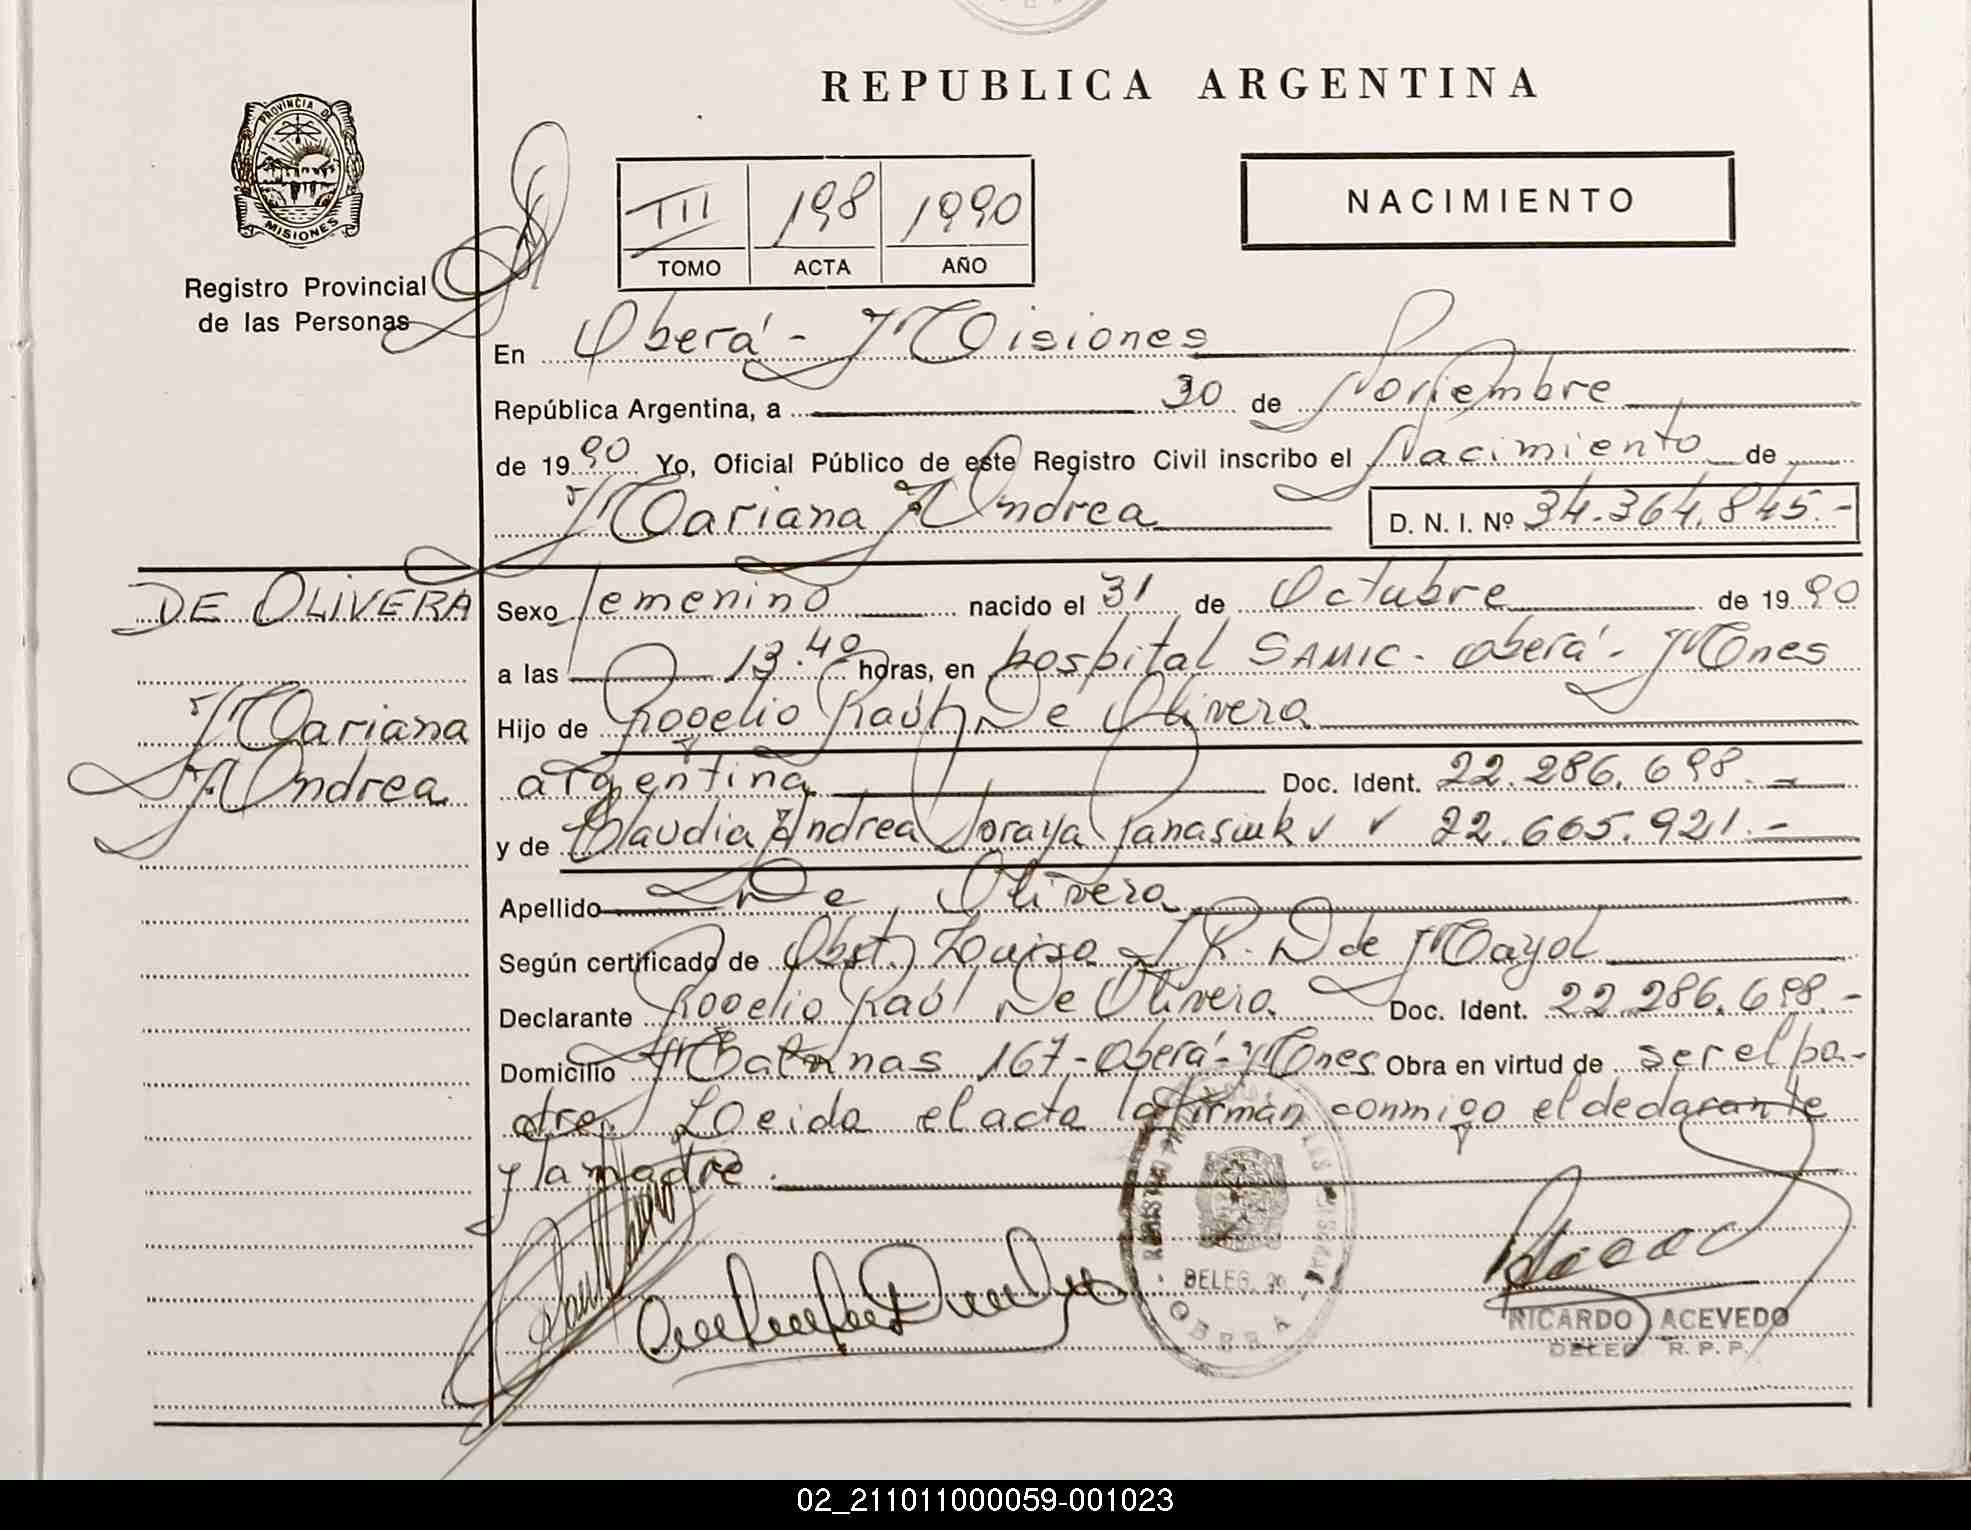 REPUBLICA ARGENTINA
PROVINCIA DE
MISIONES
Registro Provincial
de las Personas
III 198 1990
TOMO ACTA AÑO
NACIMIENTO
En Oberá - Misiones
República Argentina, a 30 de Noviembre
de 1990 Yo, Oficial Público de este Registro Civil inscribo el Nacimiento de
Mariana Andrea D. N. I. Nº 34.364.845.-
DE OLIVERA
Mariana
Andrea
Sexo femenino nacido el 31 de Octubre de 1990
a las 13.40 horas, en hospital SAMIC - Oberá - Mnes
Hijo de Rogelio Raúl De Olivera
argentina Doc. Ident. 22.286.698.-
y de Claudia Andrea Soraya Panasiuk 22.665.921.-
Apellido De Olivera
Según certificado de Obst. Luisa R. D de Mayol
Declarante Rogelio Raúl De Olivera. Doc. Ident. 22.286.698.-
Domicilio Malvinas 167 - Oberá - Mnes Obra en virtud de ser el pa-
dre. Leida el acta la firman conmigo el declarante
y la madre.
DELEG.
OBERA - MISIONES
RICARDO ACEVEDO
DELEG R. P. P.
02_211011000059-001023